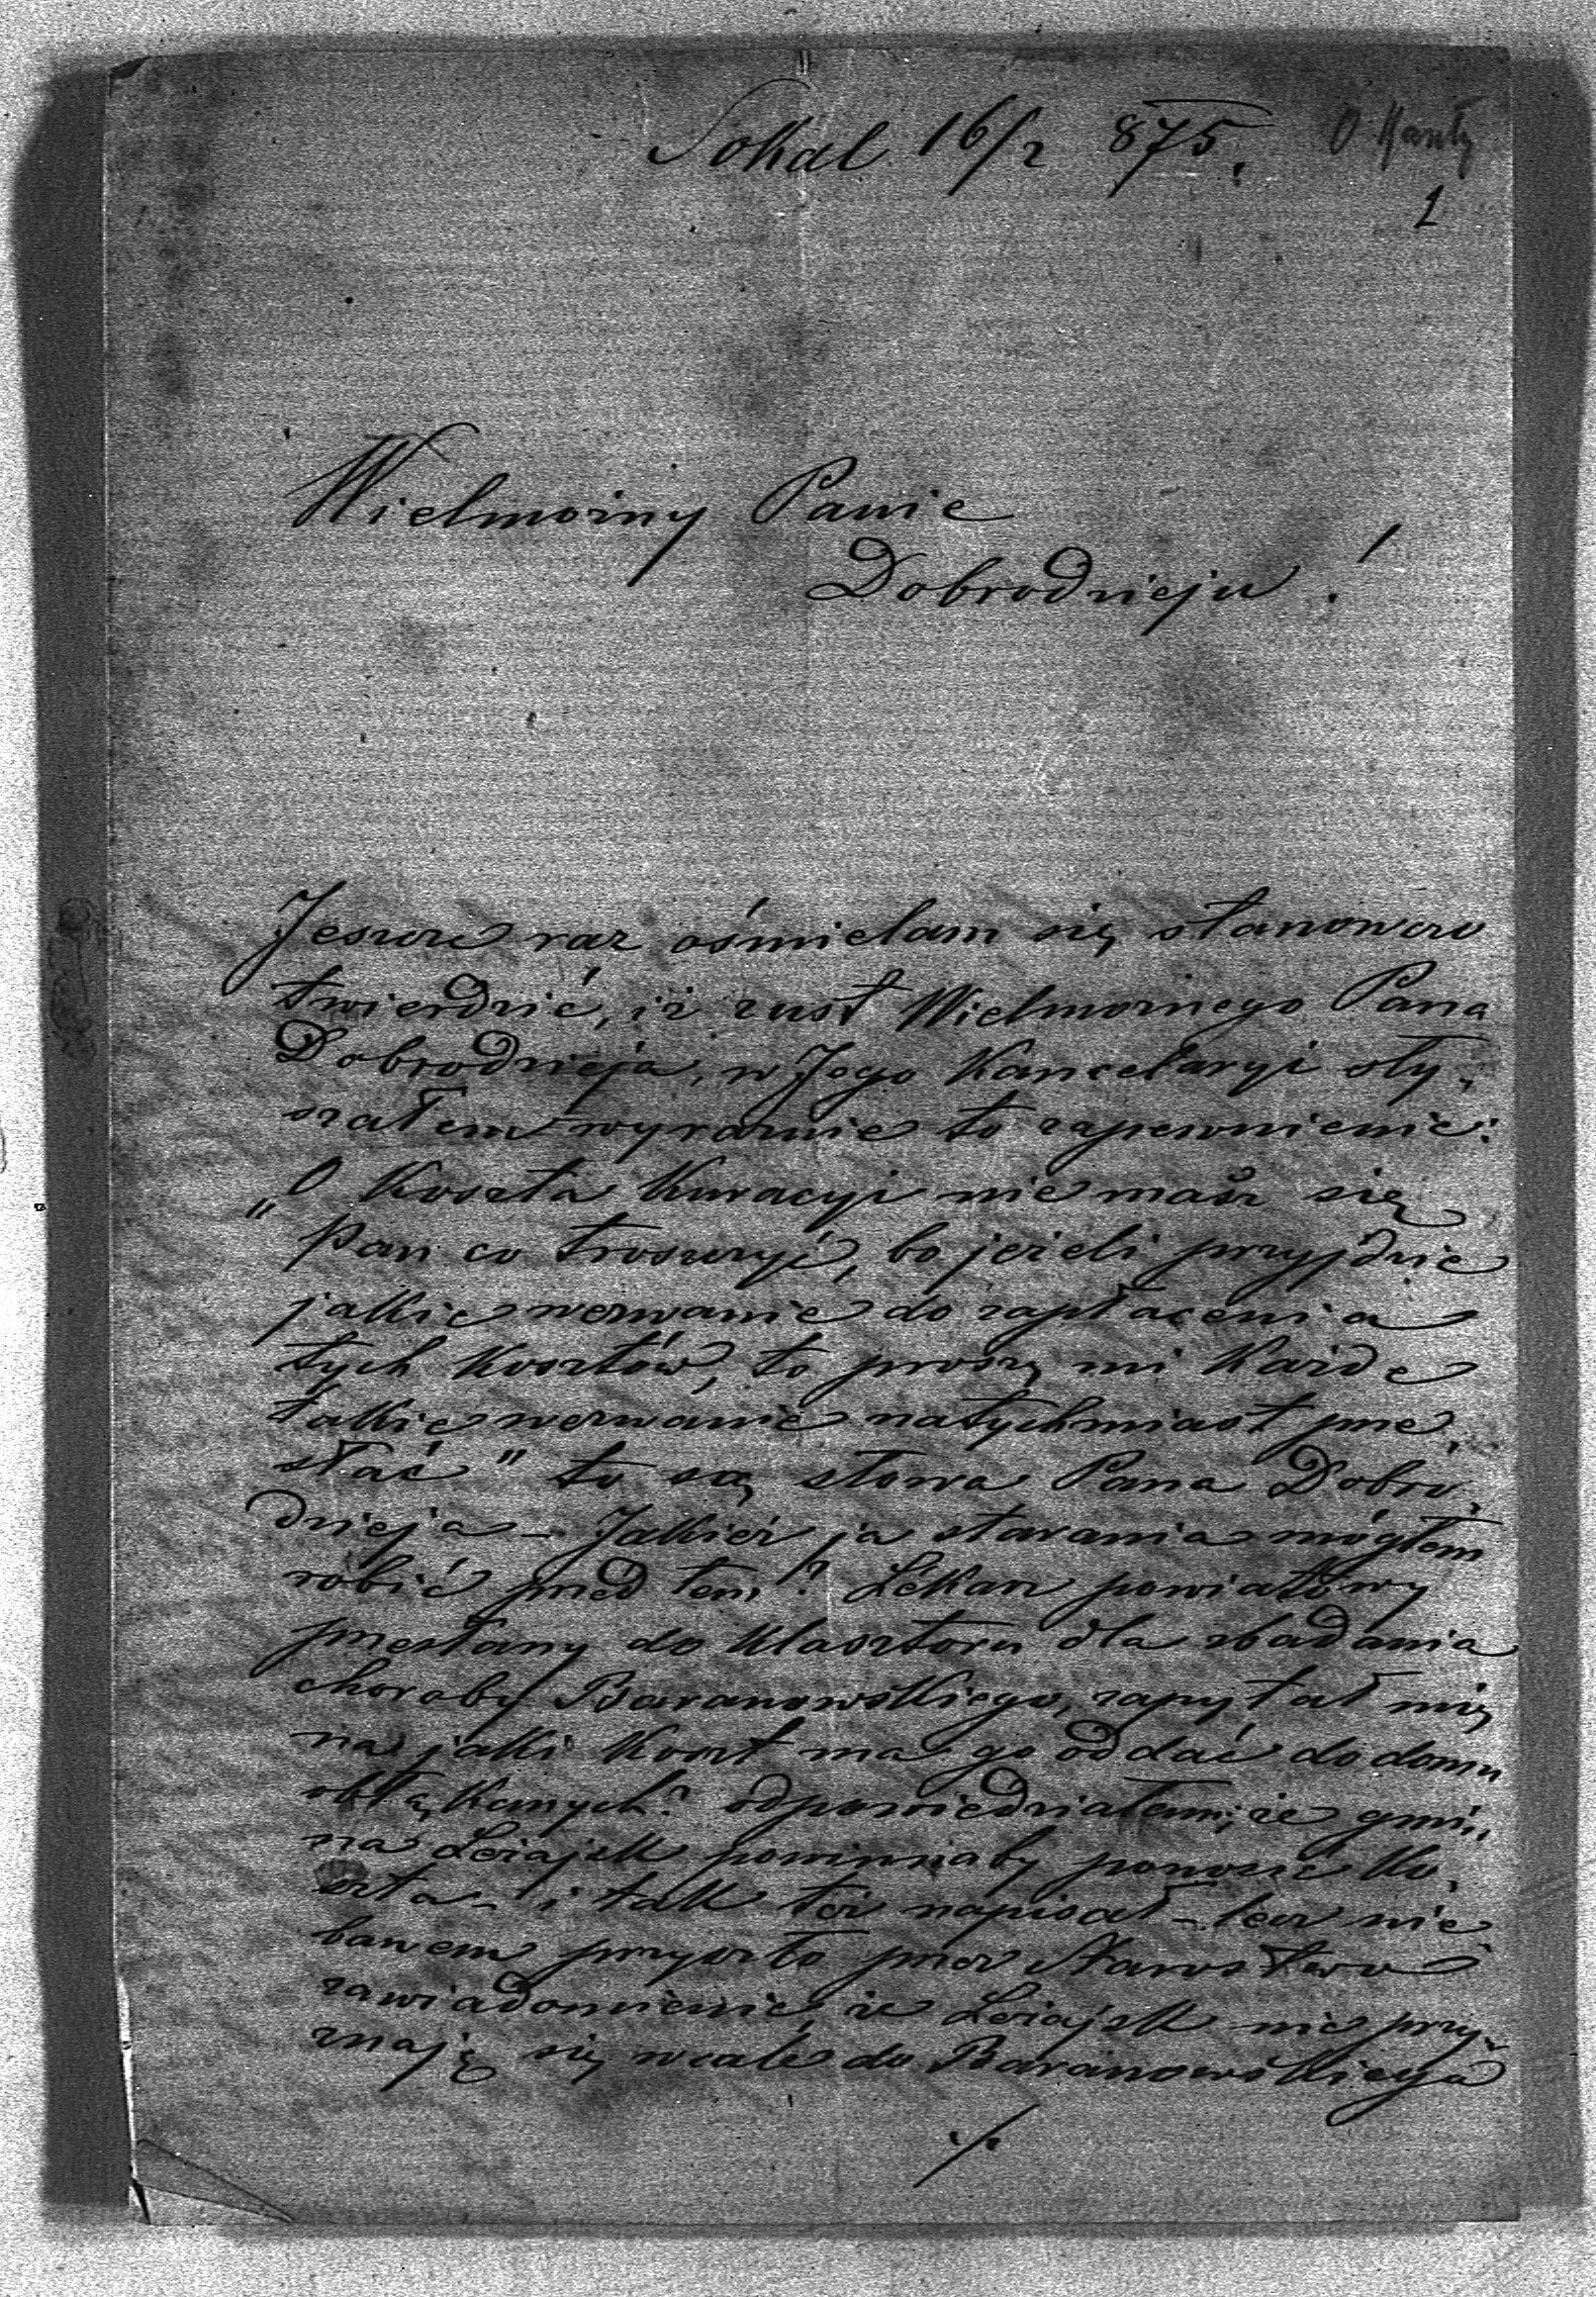 Sokal 16/2 875.
1
Wielmożny Panie
Dobrodzieju!
Jeszcze raz ośmielam się stanowczo
twierdzić, iż z ust Wielmożnego Pana
Dobrodzieja, w Jego Kancelaryi sły-
szałem wyraźnie to zapewnienie:
"O Koszta Kuracyi nie masz się
Pan co troszczyć, bo jeżeli przyjdzie
jakie wezwanie do zapłacenia
tych Kosztów, to proszę mi Każde
takie wezwanie natychmiast prze-
słać" to są słowa Pana Dobro-
dzieja – Jakież ja starania mógłem
robić przed tem? Lekarz powiatowy
przesłany do Klasztoru dla zbadania
choroby Baranowskiego, zapytał mię
na jaki Koszt ma go oddać do domu
obłąkanych? odpowiedziałem, że gmi-
na Leżajsk powinnaby ponosić Ko-
szta – i tak też napisał – lecz nie-
bawem przyszło przez Starostwo
zawiadomienie, że Leżajsk nie przy-
znaję się wcale do Baranowskiego
./.